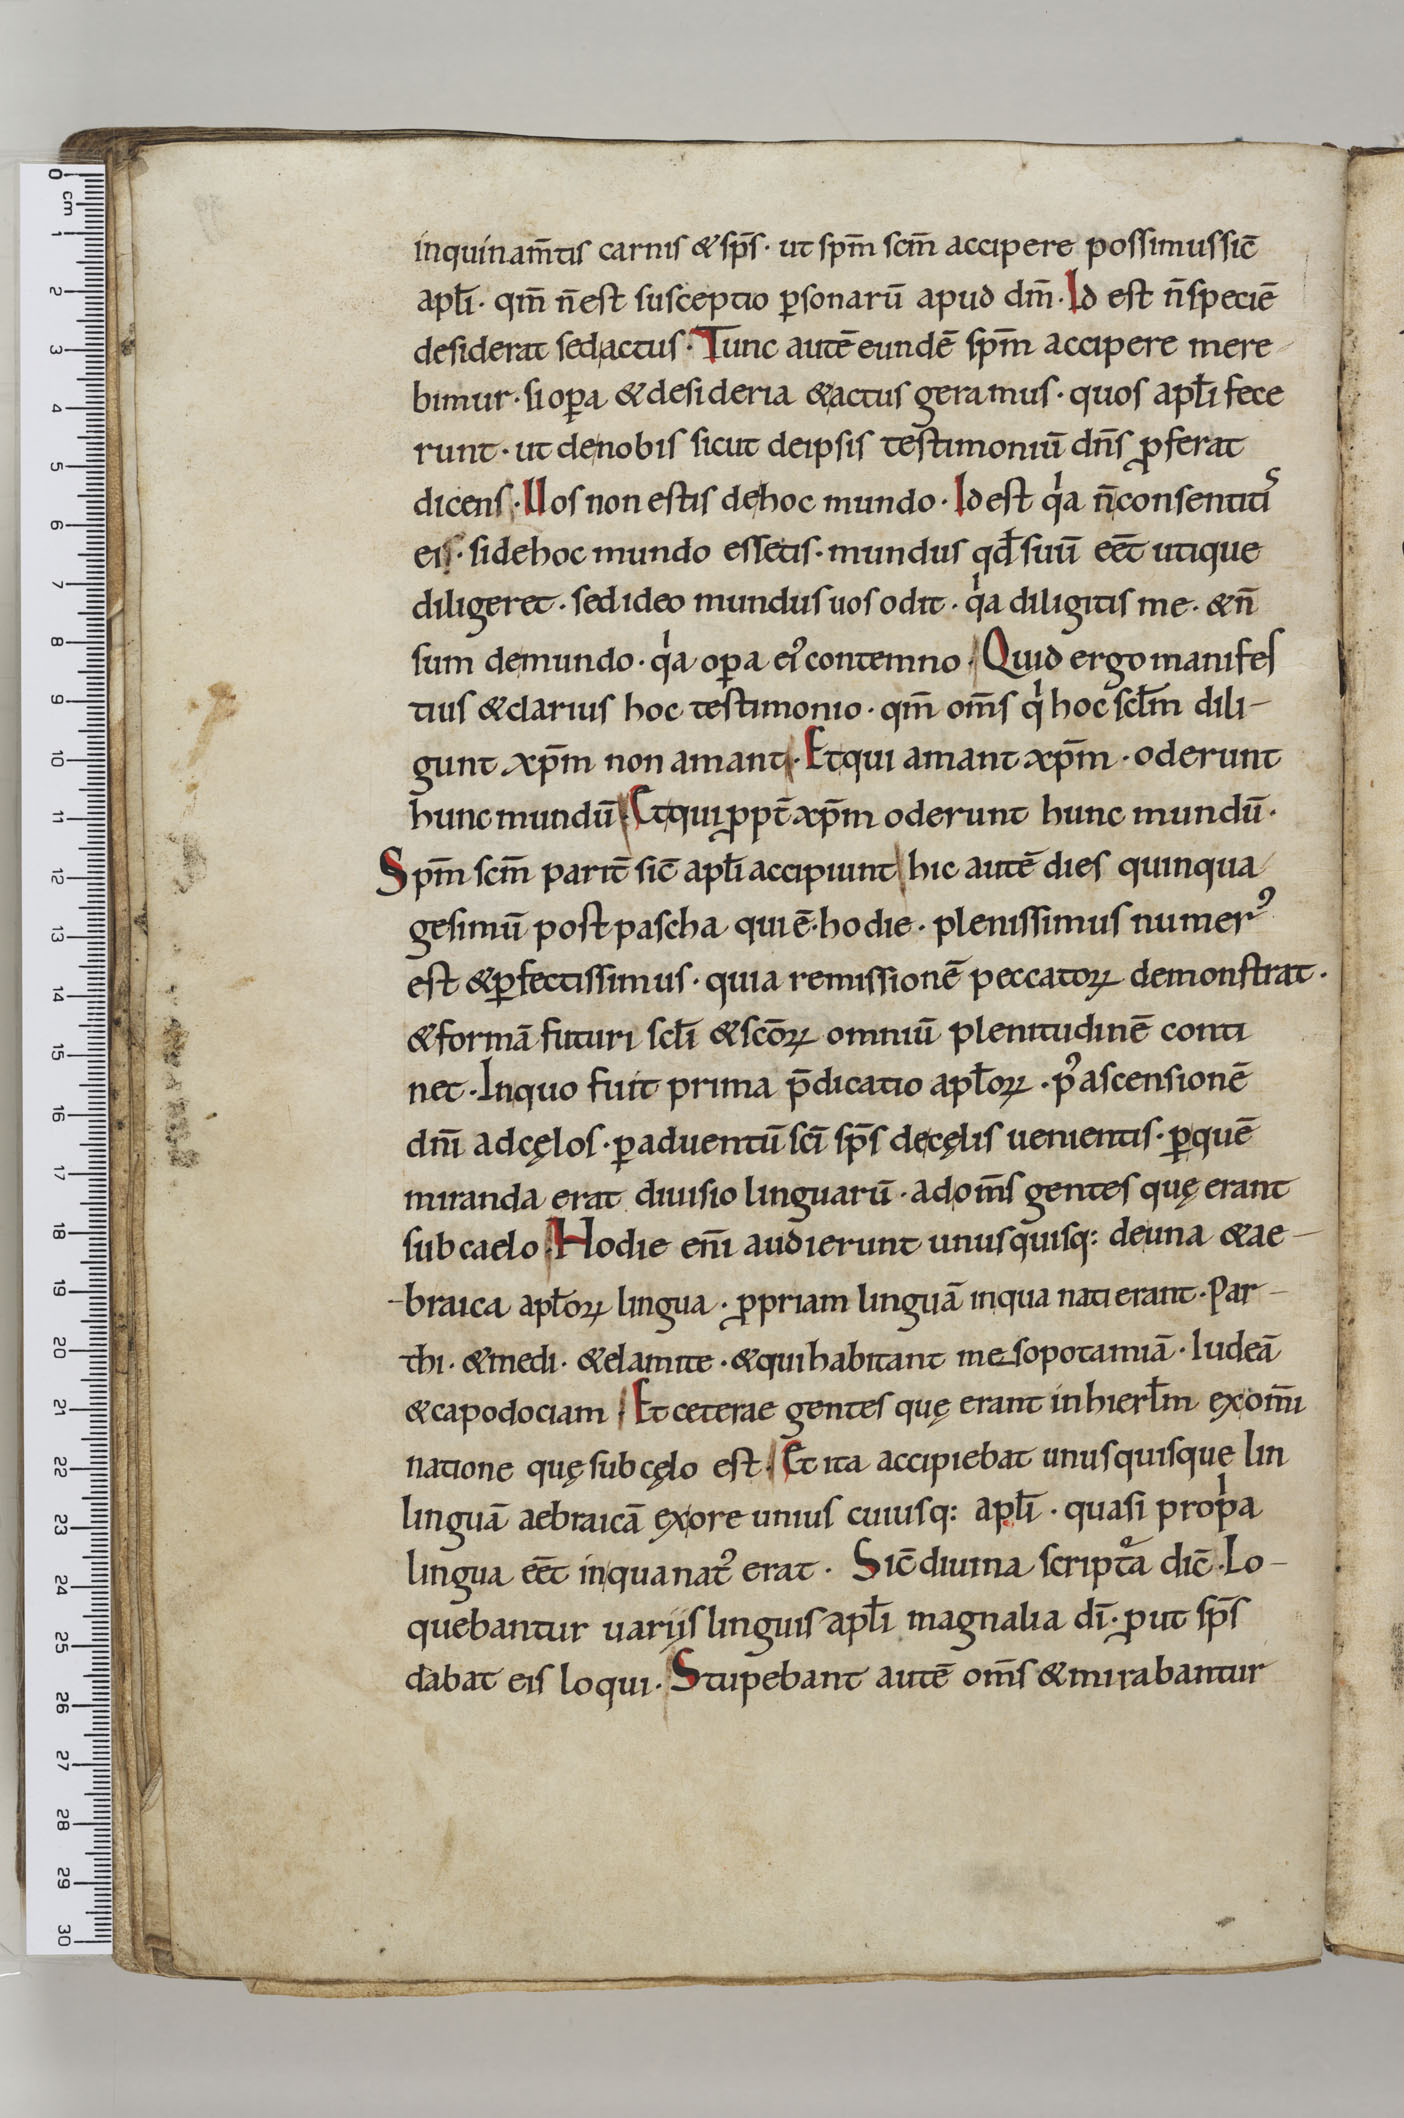 inquinam̄tis carnis & sp̄s · ut sp̄m scm̄ accipere possimus sic̄
apłi · qm̄ n̄ est susceptio ꝑsonarū apud dm̄ · Id est n̄ speciē
desiderat sed actus · Tunc autē eundē sp̄m accipere mere
bimur · si oꝑa & desideria & actus geramus · quos apłi fece
runt · ut de nobis sicut de ipsis testimoniū dn̄s ꝓferat
dicens · Uos non estis de hoc mundo · Id est qͥa n̄ consentitis
eis · si de hoc mundo essetis · mundus qđ suū eēt utique
diligeret · sed ideo mundus uos odit · qͥa diligitis me · & n̄
sum de mundo · qͥa oꝑa eiꝰ contemno · Quid ergo manifes
tius & clarius hoc testimonio · qm̄ om̄s qͥ hoc scłm dili-
gunt xp̄m non amant · Et qui amant xp̄m · oderunt
hunc mundū · Et qui ꝓpt̄ xp̄m oderunt hunc mundū ·
Sp̄m scm̄ parit̄ sic̄ apłi accipiunt hic autē dies quinqua
gesimū post pascha qui ē · hodie · plenissimus numerꝰ
est & ꝑfectissimus · quia remissionē peccatoꝝ demonstrat ·
& formā futuri scłi & scōꝝ omniū plenitudinē conti
net · In quo fuit prima p̄dicatio apłoꝝ · pꝰ ascensionē
dn̄i ad cęlos · ꝑ aduentū sc̄i sp̄s de cęlis uenientis · ꝑ quē
miranda erat diuisio linguarū · ad om̄s gentes quę erant
sub caelo · Hodie en̄i audierunt unusquisq: de una & ae-
-braica apłoꝝ lingua · ꝓpriam linguā in qua nati erant · Par-
thi · & medi · & elamite · & qui habitant mesopotamiā · Iudeā
& capodociam · Et ceterae gentes quę erant in hierłm ex om̄i
natione quę sub cęlo est · Et ita accipiebat unusquisque lin
linguā aebraicā ex ore unius cuiusq: apłi · quasi propͥa
lingua eēt in qua natꝰ erat · Sic̄ diuina scriptᵃa dic̄ · Lo-
quebantur uarijs linguis apłi magnalia dī · ꝓut sp̄s
dabat eis loqui · Stupebant autē om̄s & mirabantur